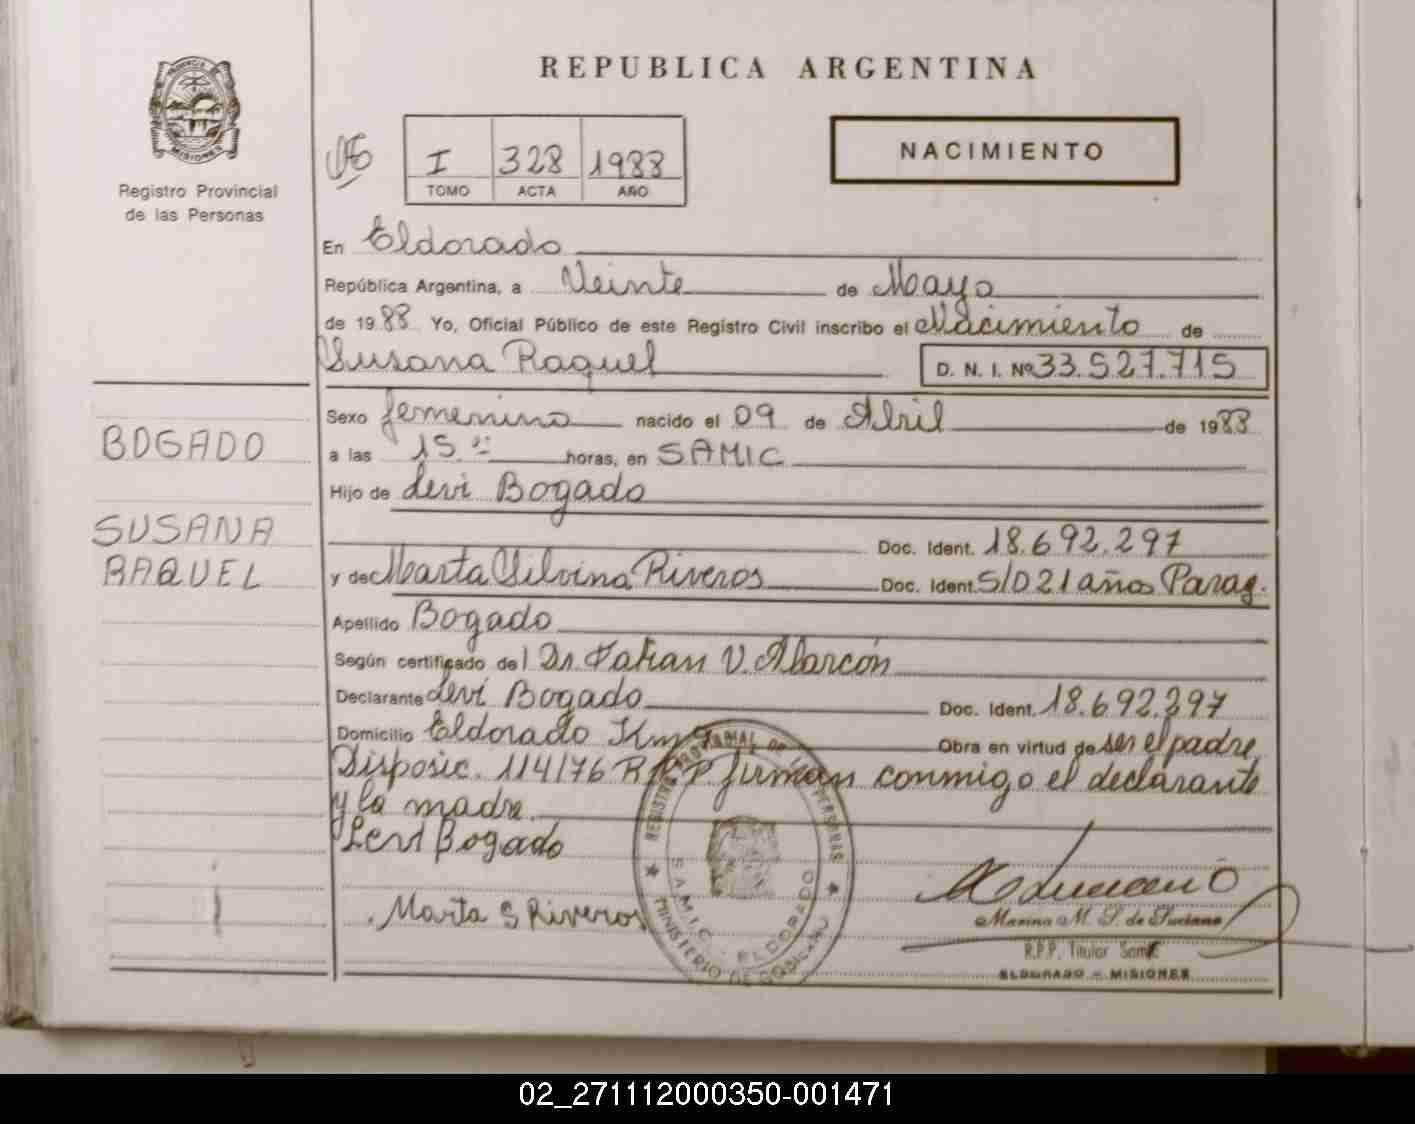 REPUBLICA ARGENTINA
PROVINCIA DE MISIONES
Registro Provincial
de las Personas
I 328 1988
TOMO ACTA AÑO
NACIMIENTO
En Eldorado
República Argentina, a Veinte de Mayo
de 1988 Yo, Oficial Público de este Registro Civil inscribo el Nacimiento de
Susana Raquel D. N. I. Nº 33.527.715
Sexo femenino nacido el 09 de Abril de 1988
a las 15.= horas, en SAMIC
Hijo de Levi Bogado
Doc. Ident. 18.692.297
y de Marta Silvina Riveros Doc. Ident. S/D 21 años Parag.
Apellido Bogado
Según certificado del Dr. V. Alarcón
Declarante Levi Bogado Doc. Ident. 18.692.297
Domicilio Eldorado Km Obra en virtud de ser el padre,
Disposic. 114/76 R.P.P. firman conmigo el declarante
y la madre.
Levi Bogado
Marta S Riveros
BOGADO
SUSANA
RAQUEL
REGISTRO PROVINCIAL DE LAS PERSONAS
S.A.M.I.C. - ELDORADO
MINISTERIO DE GOBIERNO
Marina M. S. de
R.P.P. Titular Samic
ELDORADO - MISIONES
02_271112000350-001471